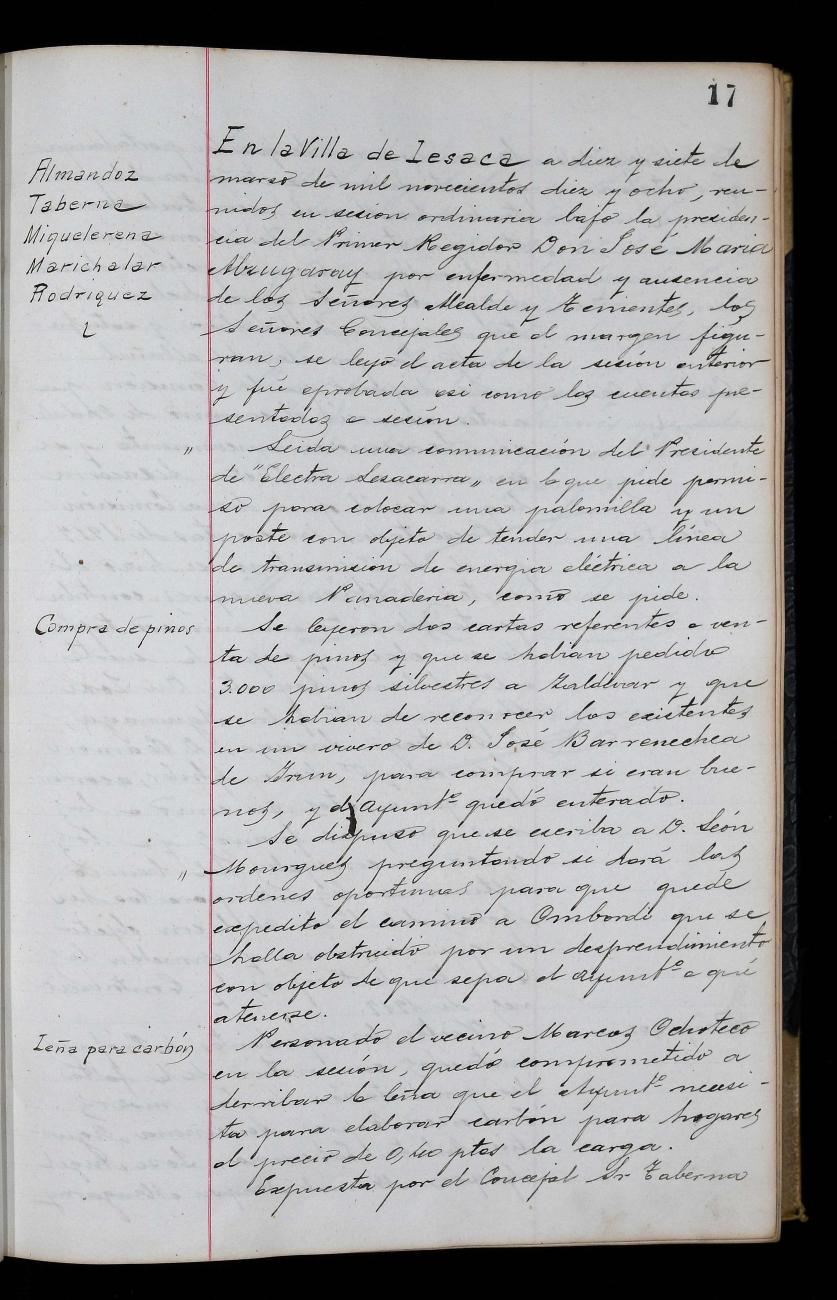 17
Almandoz
Taberna
Miquelerena
Marichalar
Rodriquez
En la Villa de Lesaca a diez y siete de
marso de mil novecientos diez y ocho, reu-
nidos en sesion ordinaria bajo la presiden-
cia del Primer Regidor Don José Maria
Alzugaray por enfermedad y ausencia
de los Señores Alcalde y Tenientes, los
Señores Concejales que al margen figu-
ran, se leyó el acta de la sesión anterior
y fué aprobada asi como las cuentas pre-
sentadas a sesión.
" Leida una comunicación del Presidente
de "Electra Lesacarra" en la que pide permi-
so para colocar una palomilla y un
poste con objeto de tender una línea
de transmision de energia eléctrica a la
nueva Panaderia, como se pide.
Compra de pinos
Se leyeron dos cartas referentes a ven-
ta de pinos y que se habian pedido
3.000 pinos silvestres a Zaldivar y que
se habian de reconocer los existentes
en un vivero de D. José Barrenechea
de Irun, para comprar si eran bue-
nos, y el Ayuntº quedó enterado.
Se dispuso que se escriba a D. León
" Mourgues preguntando si dará las
ordenes oportunas para que quede
expedito el camino a Ombordi que se
halla obstruido por un desprendimiento
con objeto de que sepa el Ayuntº a qué
atenerse.
Leña para carbón
Personado el vecino Marcos Ochoteco
en la sesión, quedó comprometido a
derribar la leña que el Ayuntº necesi-
ta para elaborar carbón para hogares
al precio de 0,40 ptas la carga.
Expuesta por el Concejal Sr Taberna